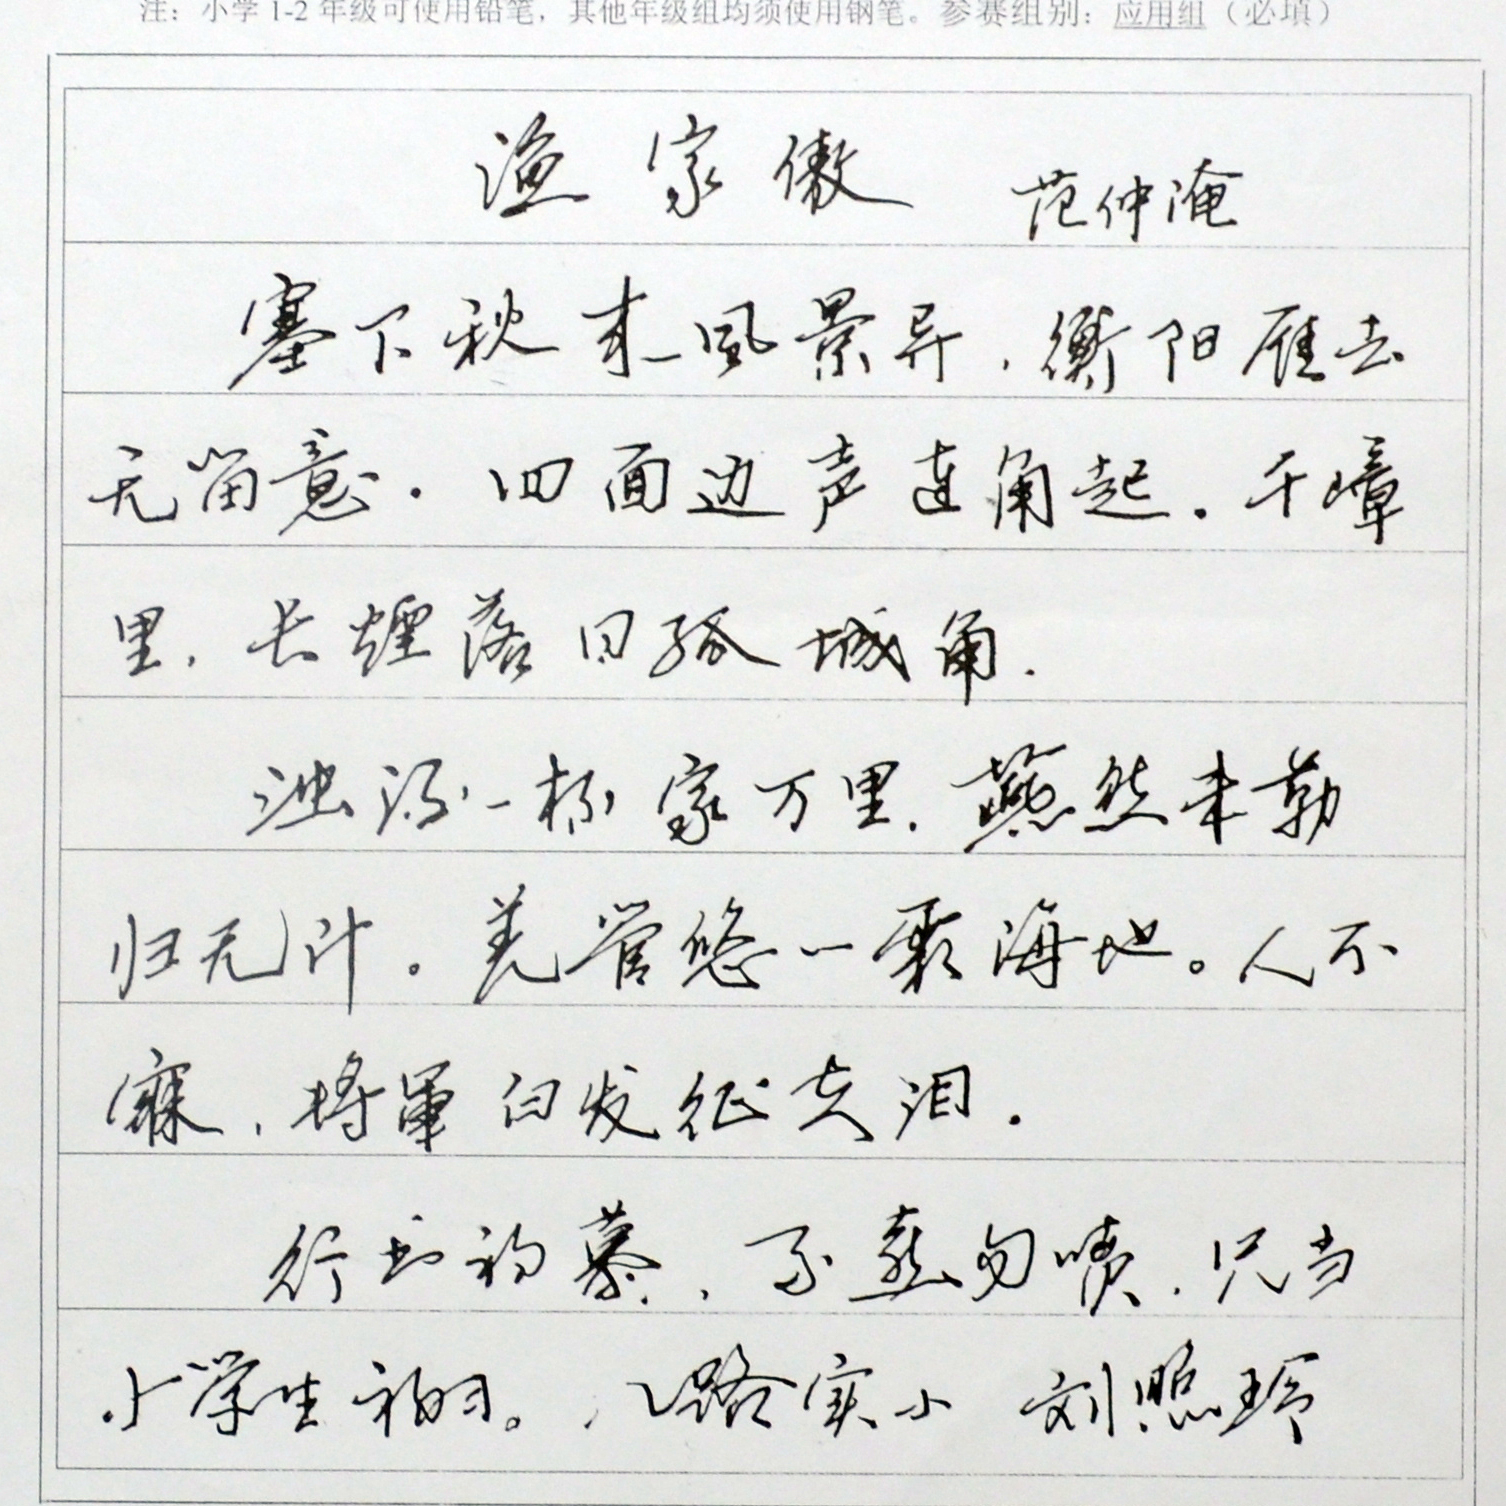 注：小学1-2年级可使用铅笔，其他年级组均须使用钢笔。参赛组别：应用组（必填）
渔家傲 范仲淹
塞下秋来风景异，衡阳雁去
无留意。四面边声连角起。千嶂
里，长煙落日孤城角.
浊酒一杯家万里，燕然未勒
归无计。羌管悠一霜满地。人不
寐，将軍白发征夫泪.
行书初摹，勿喷，只当
小学生初习。八路实小 刘照玲